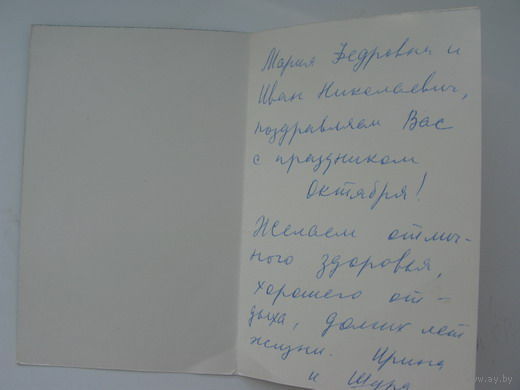 Мария Федровна и
Иван Николаевич,
поздравляем Вас
с праздником
Октября!
Желаем отлич-
ного здоровья,
хорошего от-
дыха, долгих лет
жизни. Ирина
и Шура
www.ay.by